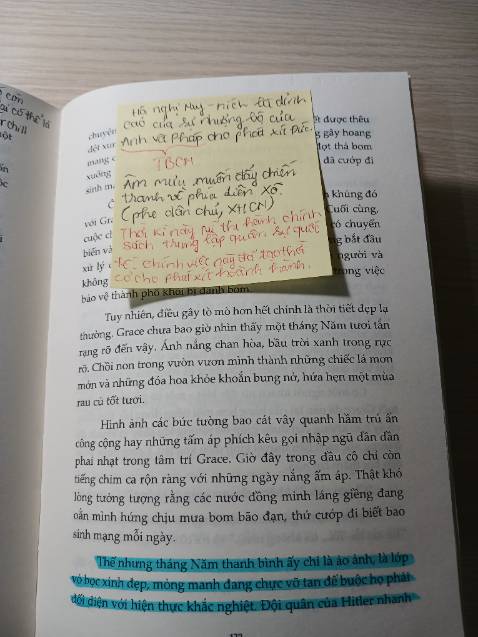 còn
ai có thể là
chill
một
Hội nghị Muy-ních là đỉnh
cao của sự nhượng bộ của
Anh và Pháp cho phát xít Đức.
TBCN
Âm mưu muốn đẩy chiến
tranh về phía Liên Xô.
(phe dân chủ, XHCN)
Thời kì này Mĩ thi hành chính
sách trung lập
chính việc này đã tạo thời
cơ cho phát xít hoành hành.
chuyện
ết được thêu
dệt xung
gây hoang
mang c
đợt thả bom
xuống
đã cướp đi
sinh m
khủng đó
với Grace
Cuối cùng,
cuộc ch
có chuyển
biến và
bắt đầu
xử lý c
người và
không
trong việc
bảo vệ thành phố khỏi bị đánh bom.
Tuy nhiên, điều gây tò mò hơn hết chính là thời tiết đẹp lạ
thường. Grace chưa bao giờ nhìn thấy một tháng Năm tươi tắn
rạng rỡ đến vậy. Ánh nắng chan hòa, bầu trời xanh trong rực
rỡ. Chồi non trong vườn vươn mình thành những chiếc lá mơn
mởn và những đóa hoa khỏe khoắn bung nở, hứa hẹn một mùa
rau củ tốt tươi.
Hình ảnh các bức tường bao cát vây quanh hầm trú ẩn
công cộng hay những tấm áp phích kêu gọi nhập ngũ dần dần
phai nhạt trong tâm trí Grace. Giờ đây trong đầu cô chỉ còn
tiếng chim ca rộn ràng với những ngày nắng ấm áp. Thật khó
lòng tưởng tượng rằng các nước đồng minh láng giềng đang
oằn mình hứng chịu mưa bom bão đạn, thứ cướp đi biết bao
sinh mạng mỗi ngày.
Thế nhưng tháng Năm thanh bình ấy chỉ là ảo ảnh, là lớp
vỏ bọc xinh đẹp, mỏng manh đang chực vỡ tan để buộc họ phải
đối diện với hiện thực khắc nghiệt. Đội quân của Hitler nhanh